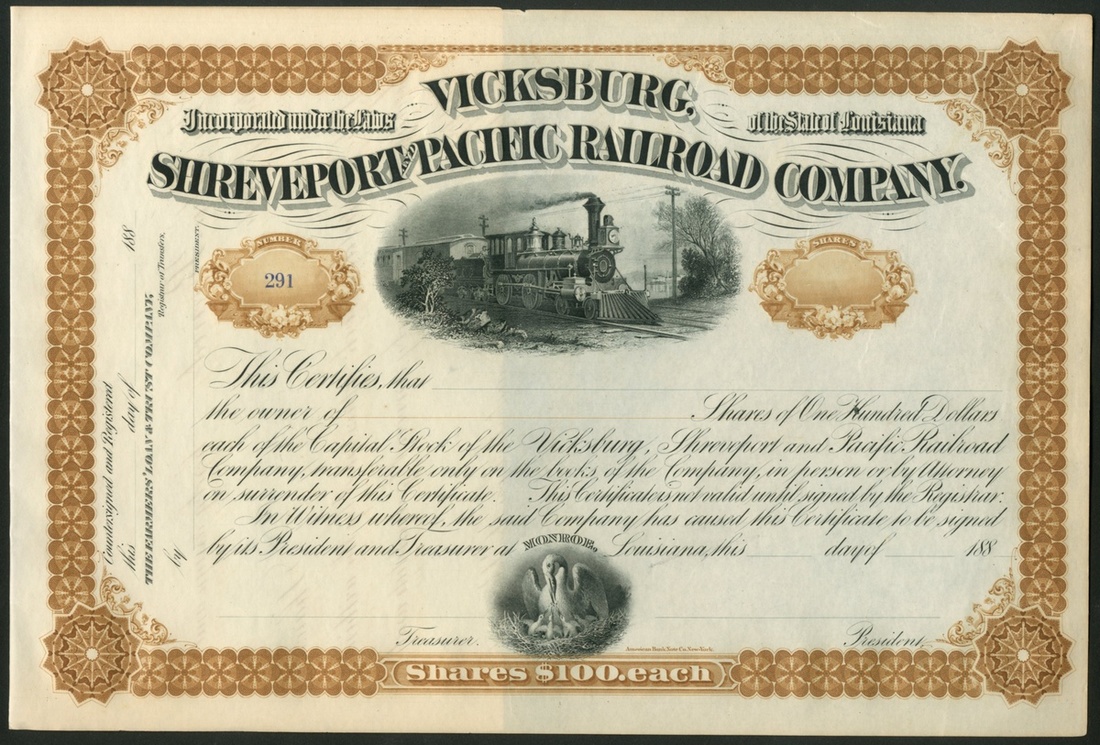 VICKSBURG,
Incorporated under the Laws of the State of Louisiana
SHREVEPORT AND PACIFIC RAILROAD COMPANY.
NUMBER
291
SHARES
This Certifies, that
the owner of Shares of One Hundred Dollars
each of the Capital Stock of the Vicksburg, Shreveport and Pacific Railroad
Company, transferable only on the books of the Company, in person or by Attorney
on surrender of this Certificate. This Certificate is not valid until signed by the Registrar.
In Witness whereof, the said Company has caused this Certificate to be signed
by its President and Treasurer at MONROE, Louisiana, this day of 188
Treasurer. President.
American Bank Note Co. New York.
Shares $100. each
Countersigned and Registered
this day of 188
THE FARMERS' LOAN & TRUST COMPANY,
Registrar of Transfers,
by PRESIDENT.